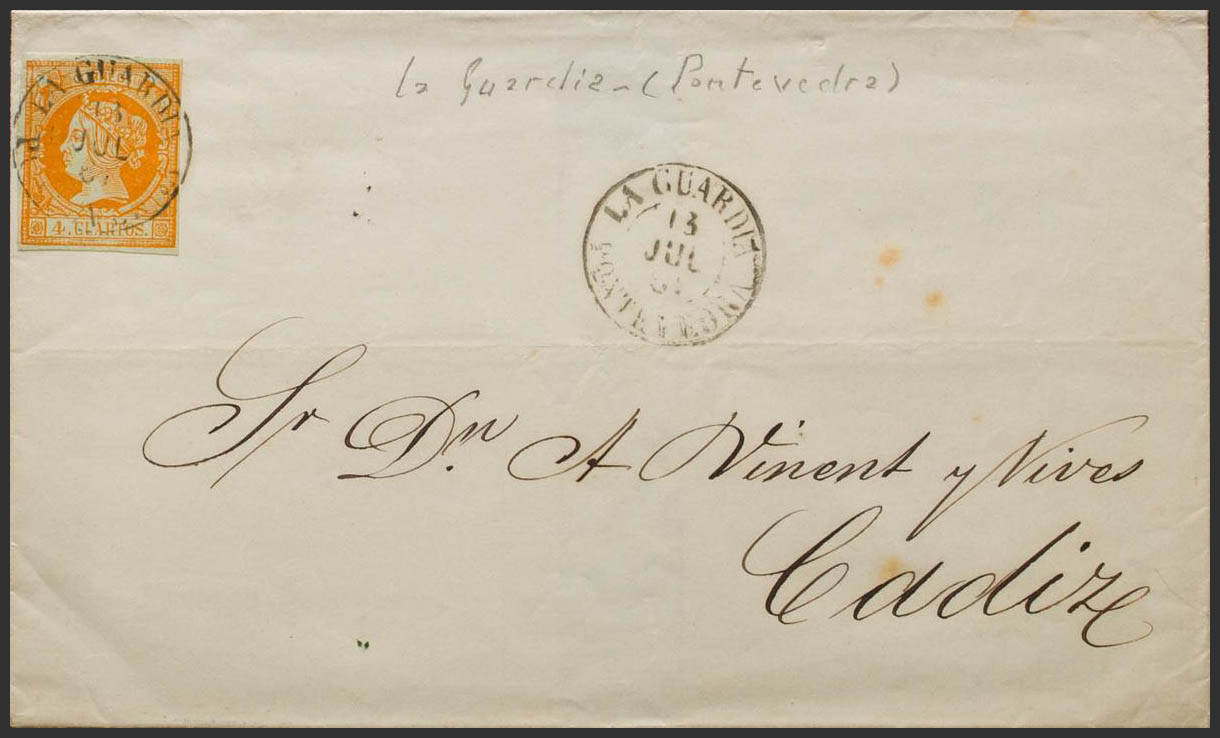 La Guardia - (Pontevedra)
LA GUARDIA
13
JUL
4. CUARTOS.
LA GUARDIA
13
JUL
PONTEVEDRA
Sr Dn. A Vinent y Vives
Cadiz